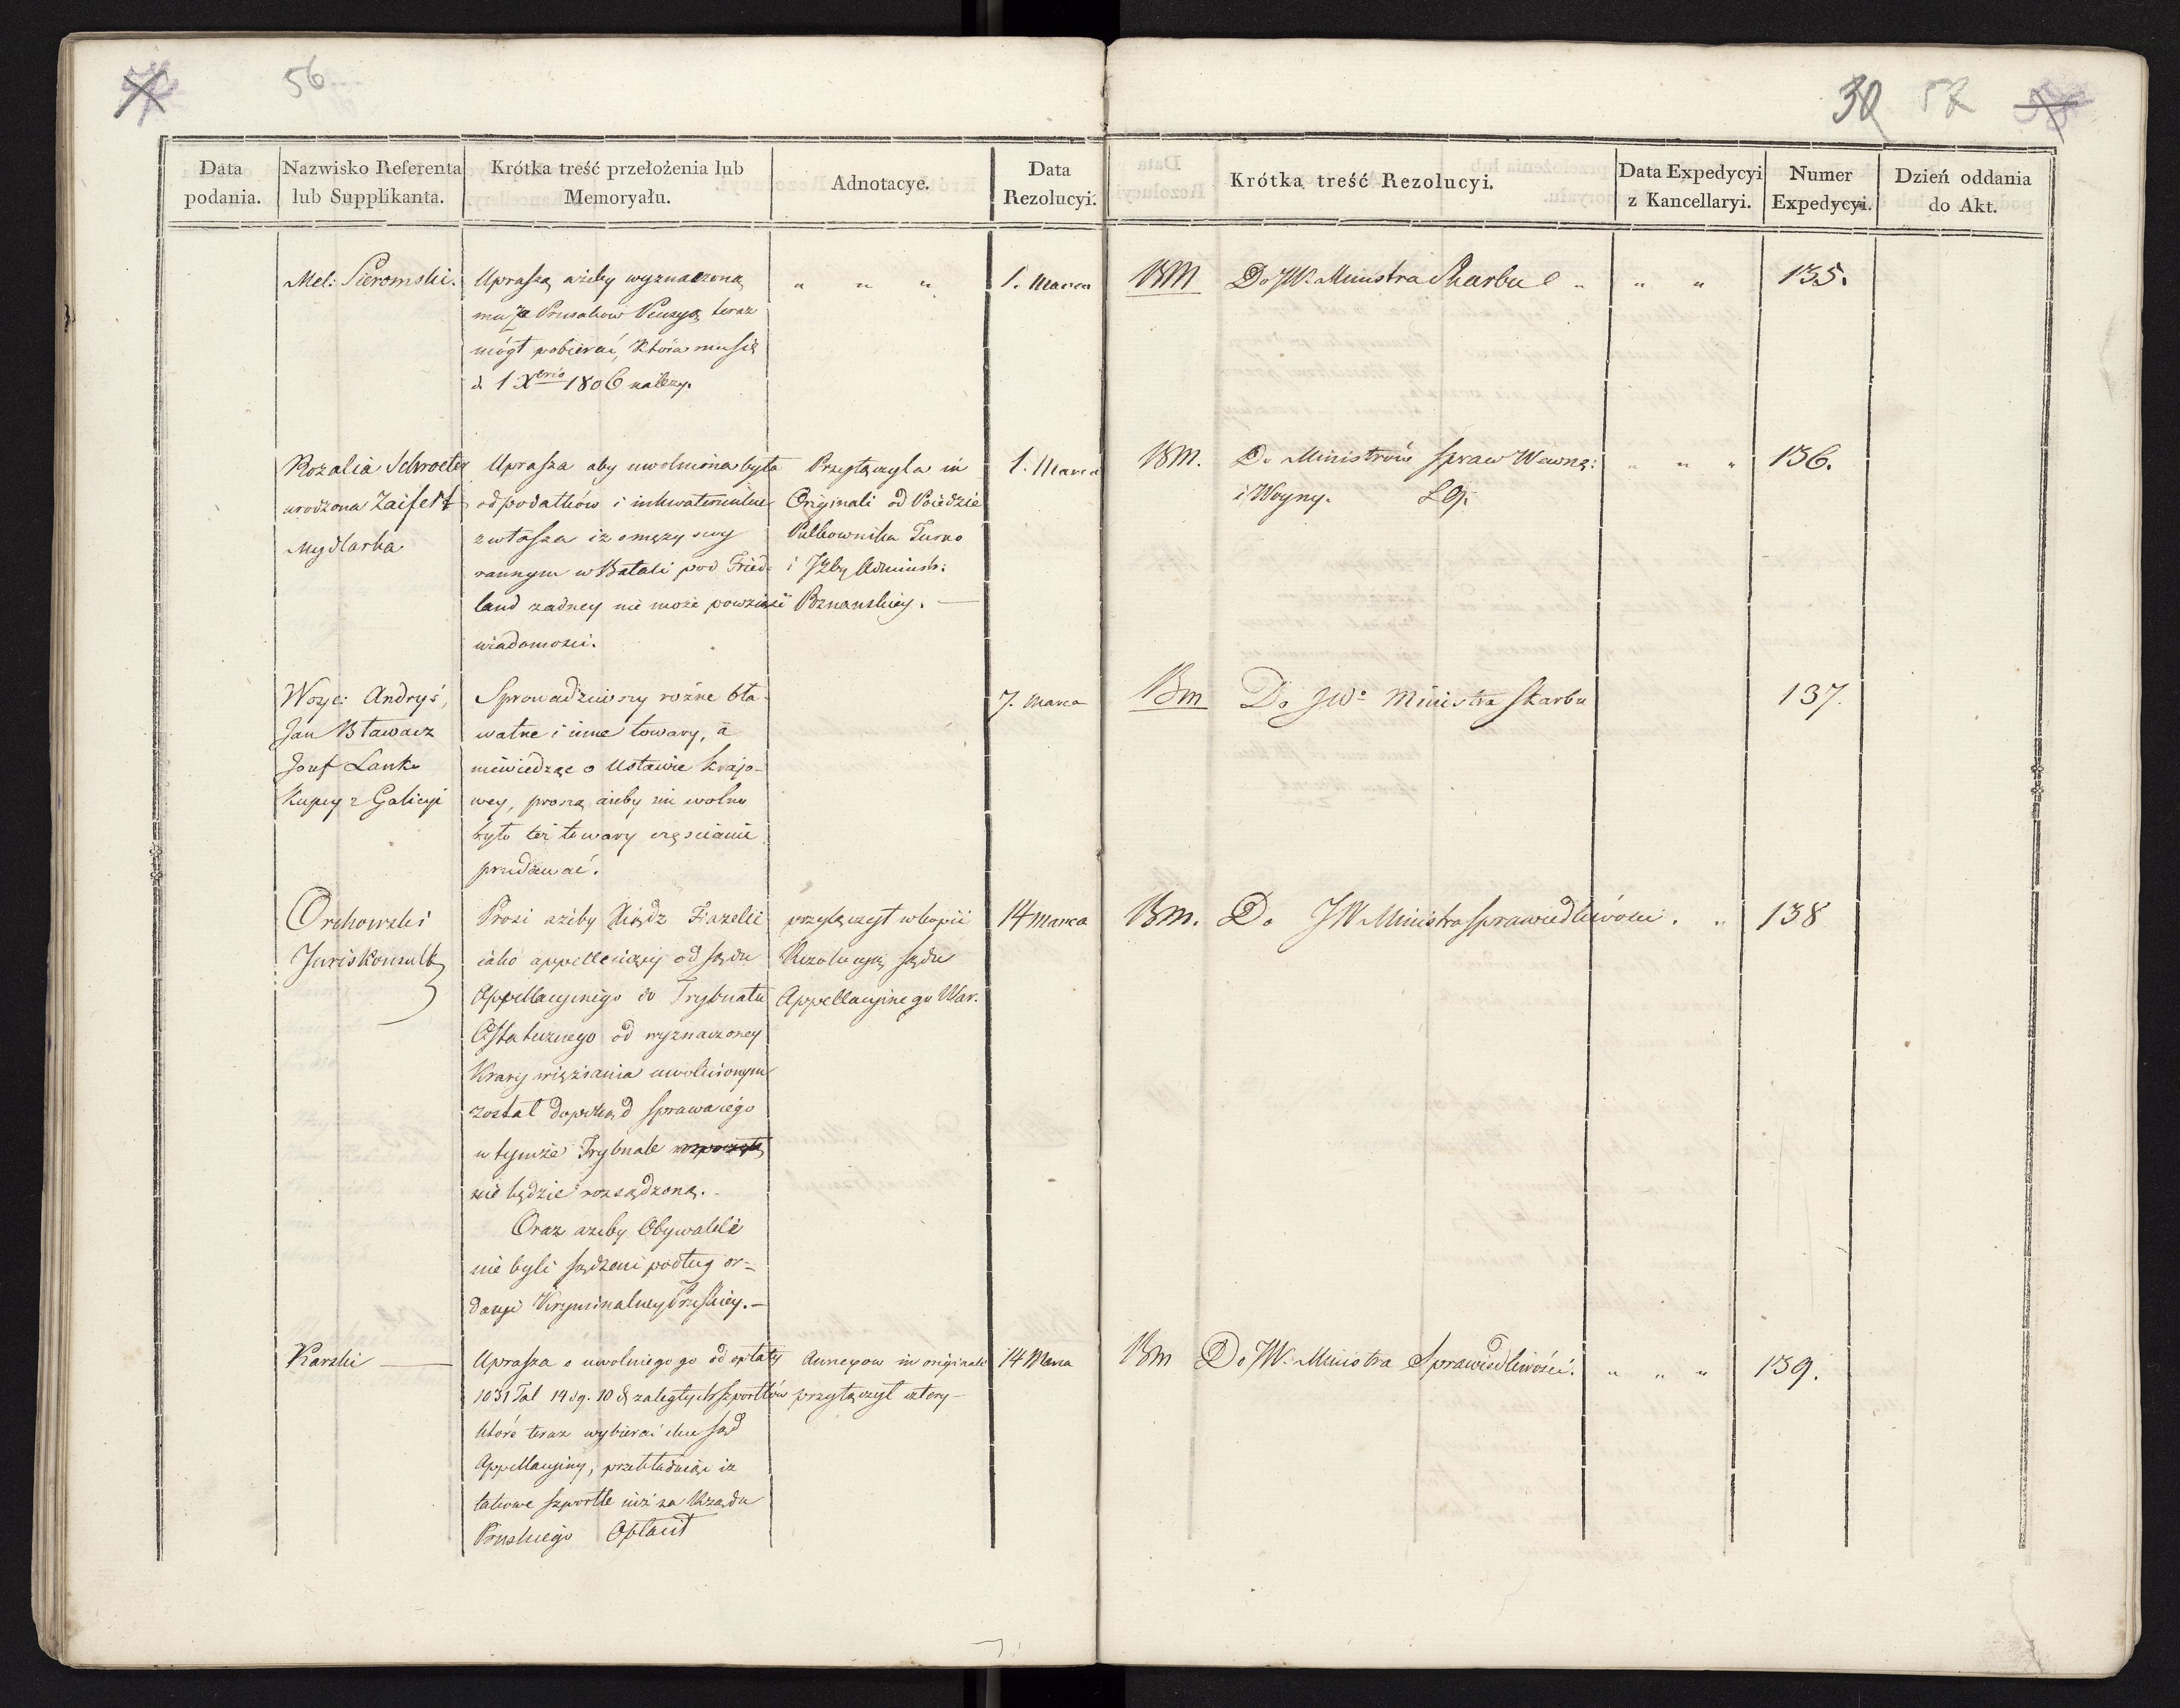 56
30 57
Data podania.
Nazwisko Referenta lub Supplikanta.
Krótka treść przełożenia lub Memoryału.
Adnotacye.
Data Rezolucyi.
Krótka treść Rezolucyi.
Data Expedycyi z Kancellaryi.
Numer Expedycyi.
Dzień oddania do Akt.
Mel: Sieromski.
Uprasza ażeby wyznaczoną
mu za Prusaków Pensyą teraz
mógł pobierać, która mu się
d. 1 Xbris 1806 należy.
" " "
1. Marca
BM
Do JW. Ministra Skarbu
" " "
135.
Rozalia Schroeter
urodzona Zaifert
Mydlarka
Uprasza aby uwolniona była
od podatków i inkwaterunku
zwłasza iż o mężu swy
rannym w Batali pod Fried-
land zadney nie może powziąść
wiadomości.
Przyłączyla in
Originali od
Pułkownika Turno
i Izby Administr:
Poznanskiey. —
1. Marca
BM.
Do Ministrów Spraw Wewnę:
i Woyny.
" " "
136.
Woyc: Andryś,
Jan Bławacz
Jozef Lanko
Kupcy z Galicyi
Sprowadziwszy rożne bła-
watne i inne towary, a
niewiedząc o Ustawie krajo-
wey, proszą ażeby im wolno
było też towary częściami
przedawać.
7. Marca
Bm
Do JWo Ministra Skarbu
137.
Orchowski
Juriskonsult
Prosi ażeby Xiądz Fiazelli
iako appelluiący od sądu
Appellacyinego do Trybunału
Ostatecznego od wyznaczoney
Kary więzienia uwolnionym
został dopokąd sprawa iego
w tymże Trybunale
nie będzie rozsądzoną.
Oraz ażeby Obywatele
nie byli sądzeni podług or-
dacyi Kryminalney Pruskiey. —
przyłączył w kopii
Rezolucyią sądu
Appellacyinego War.
14 Marca
Bm.
Do JW Ministra Sprawiedliwości. "
138
Karski —
Uprasza o uwolnie go od opłaty
1031 Tal 14 dg. 10 d zaległych szportlów
które teraz wybierać chce sąd
Appellacyiny, przekładaiąc iż
takowe szportle iuż za Rządu
Pruskiego Opłacił
Annexow in originali
przyłączył cztery —
14 Marca
Bm
Do JW. Ministra Sprawiedliwości.
" " "
139.